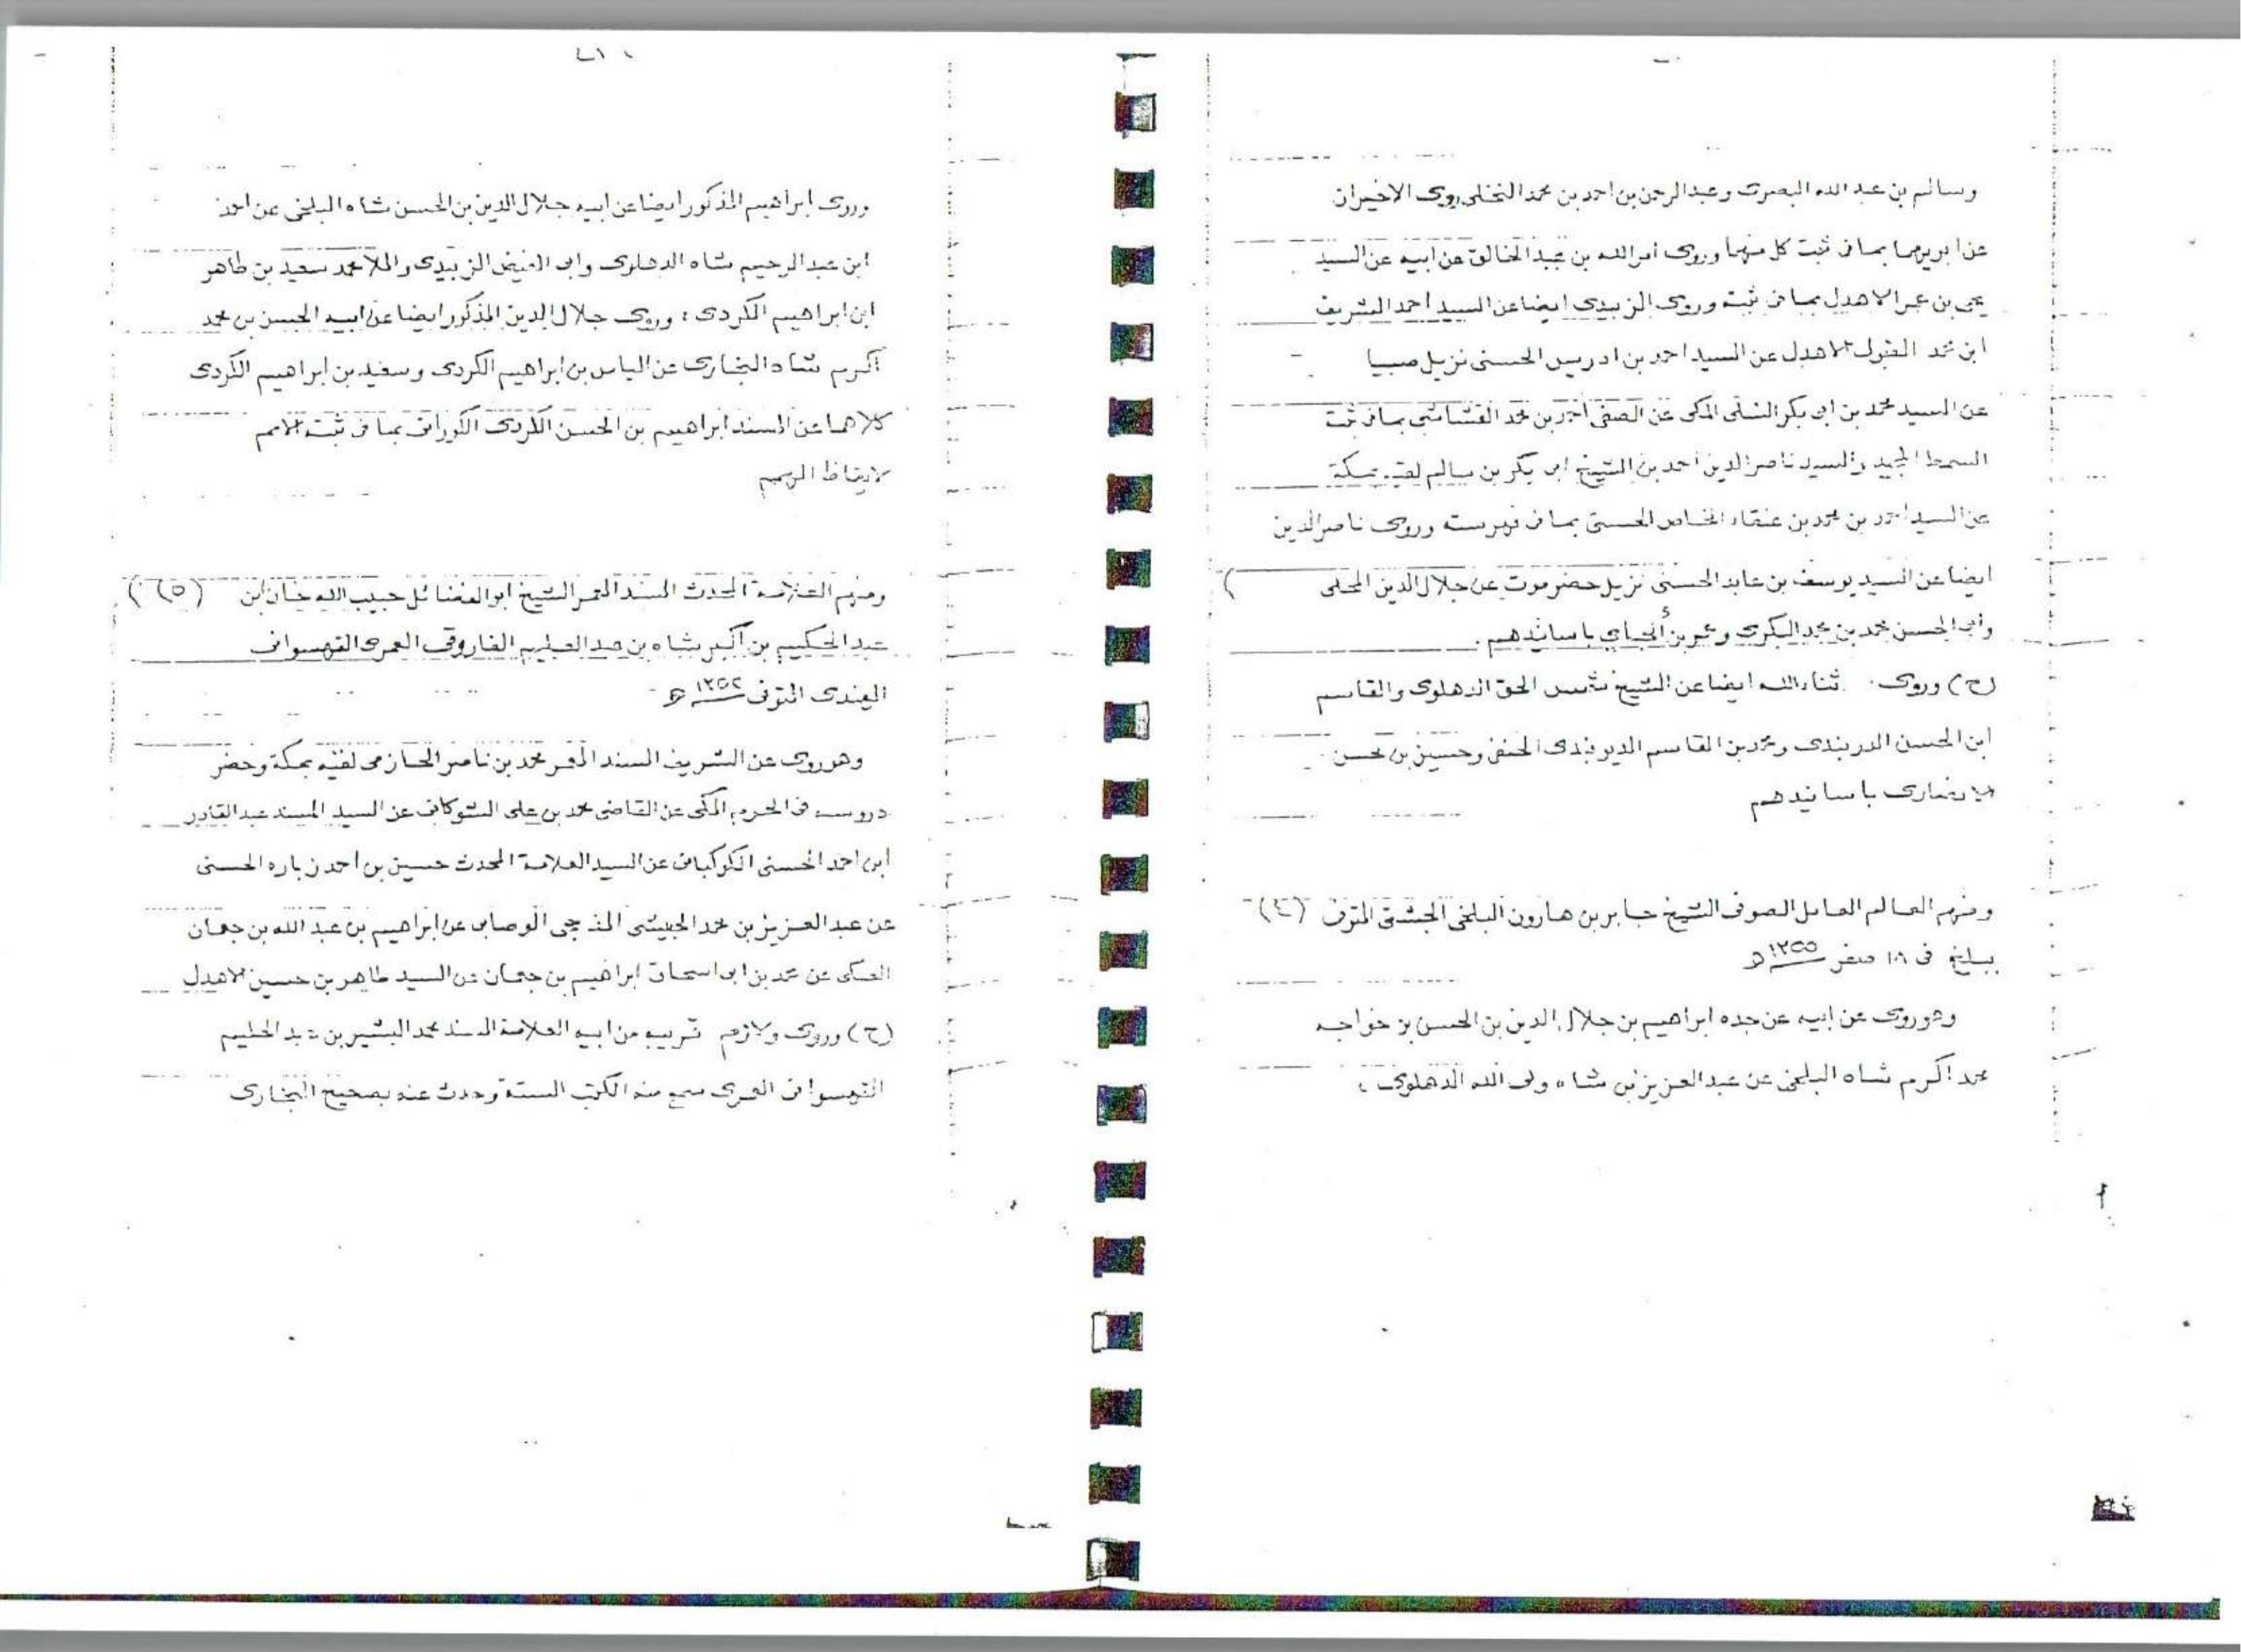 وسالم بن عبد الله البصرى وعبد الرحمن بن احمد بن محمد النخلى روى الاخيران
عن ابويهما بما فى ثبت كل منهما وروى امر الله بن عبد الخالق عن ابيه عن السيد
يحيى بن عمر الاهدل بما فى ثبته وروى الزبيدى ايضا عن السيد احمد الشريف
ابن محمد المقبول الاهدل عن السيد احمد بن ادريس الحسنى نزيل صبيا
عن السيد محمد بن ابى بكر الشلى المكى عن الصفى احمد بن محمد القشاشى بما فى ثبت
السمط المجيد والسيد ناصر الدين احمد بن الشيخ ابى بكر بن سالم لقيه بمكة
عن السيد احمد بن محمد بن عنقاء الخاص الحسنى بما فى فهرسته وروى ناصر الدين
ايضا عن السيد يوسف بن عابد الحسنى نزيل حضرموت عن جلال الدين المحلى
وأبى الحسن محمد بن محمد البكرى وعمر بن أبأسانيدهم .
(ح) وروى ثناء الله ايضا عن الشيخ شمس الحق الدهلوى والقاسم
ابن الحسن الدربندى ومحمد بن القاسم الديوبندى الحنفى وحسين بن محسن
الانصارى باسانيدهم
(٤) ومنهم العالم العامل الصوفى الشيخ جابر بن هارون البلخى الجشتى المتوفى
ببلخ فى ١٨ صفر ١٣٥٥ ه
وهو روى عن ابيه عن جده ابراهيم بن جلال الدين بن الحسن بن خواجه
محمد اكرم شاه البلخى عن عبد العزيز بن شاه ولى الله الدهلوى ،
وروى ابراهيم المذكور ايضا عن ابيه جلال الدين بن الحسن شاه البلخى عن احمد
ابن عبد الرحيم شاه الدهلوى وابى الفيض الزبيدى والملا محمد سعيد بن طاهر
ابن ابراهيم الكردى ؛ وروى جلال الدين المذكور ايضا عن ابيه الحسن بن محمد
اكرم شاه البخارى عن الياس بن ابراهيم الكردى وسعيد بن ابراهيم الكردى
كلاهما عن المسند ابراهيم بن الحسن الكردى الكورانى بما فى ثبته الامم
لايقاظ الهمم
(٥) ومنهم العلامة المحدث المسند المعمر الشيخ ابو الفضائل حبيب الله خان ابن
عبد الحكيم بن اكبر شاه بن عبد العظيم الفاروقى العمرى القهسوانى
الهندى المتوفى ١٣٥٢ ه
وهو روى عن الشريف المسند المعمر محمد بن ناصر الحازمى لقيه بمكة وحضر
دروسه فى الحرم المكى عن القاضى محمد بن على الشوكانى عن السيد المسند عبد القادر
ابن احمد الحسنى الكوكبانى عن السيد العلامة المحدث حسين بن احمد زباره الحسنى
عن عبد العزيز بن محمد الحبيشى المذحجى الوصابى عن ابراهيم بن عبد الله بن جعمان
العكى عن محمد بن ابى اسحاق ابراهيم بن جعمان عن السيد طاهر بن حسين الاهدل
(ح) وروى ولازم قريبه من ابيه العلامة المسند محمد البشير بن عبد الحليم
القهسوانى العمرى سمع منه الكتب الستة وحدث عنه بصحيح البخارى